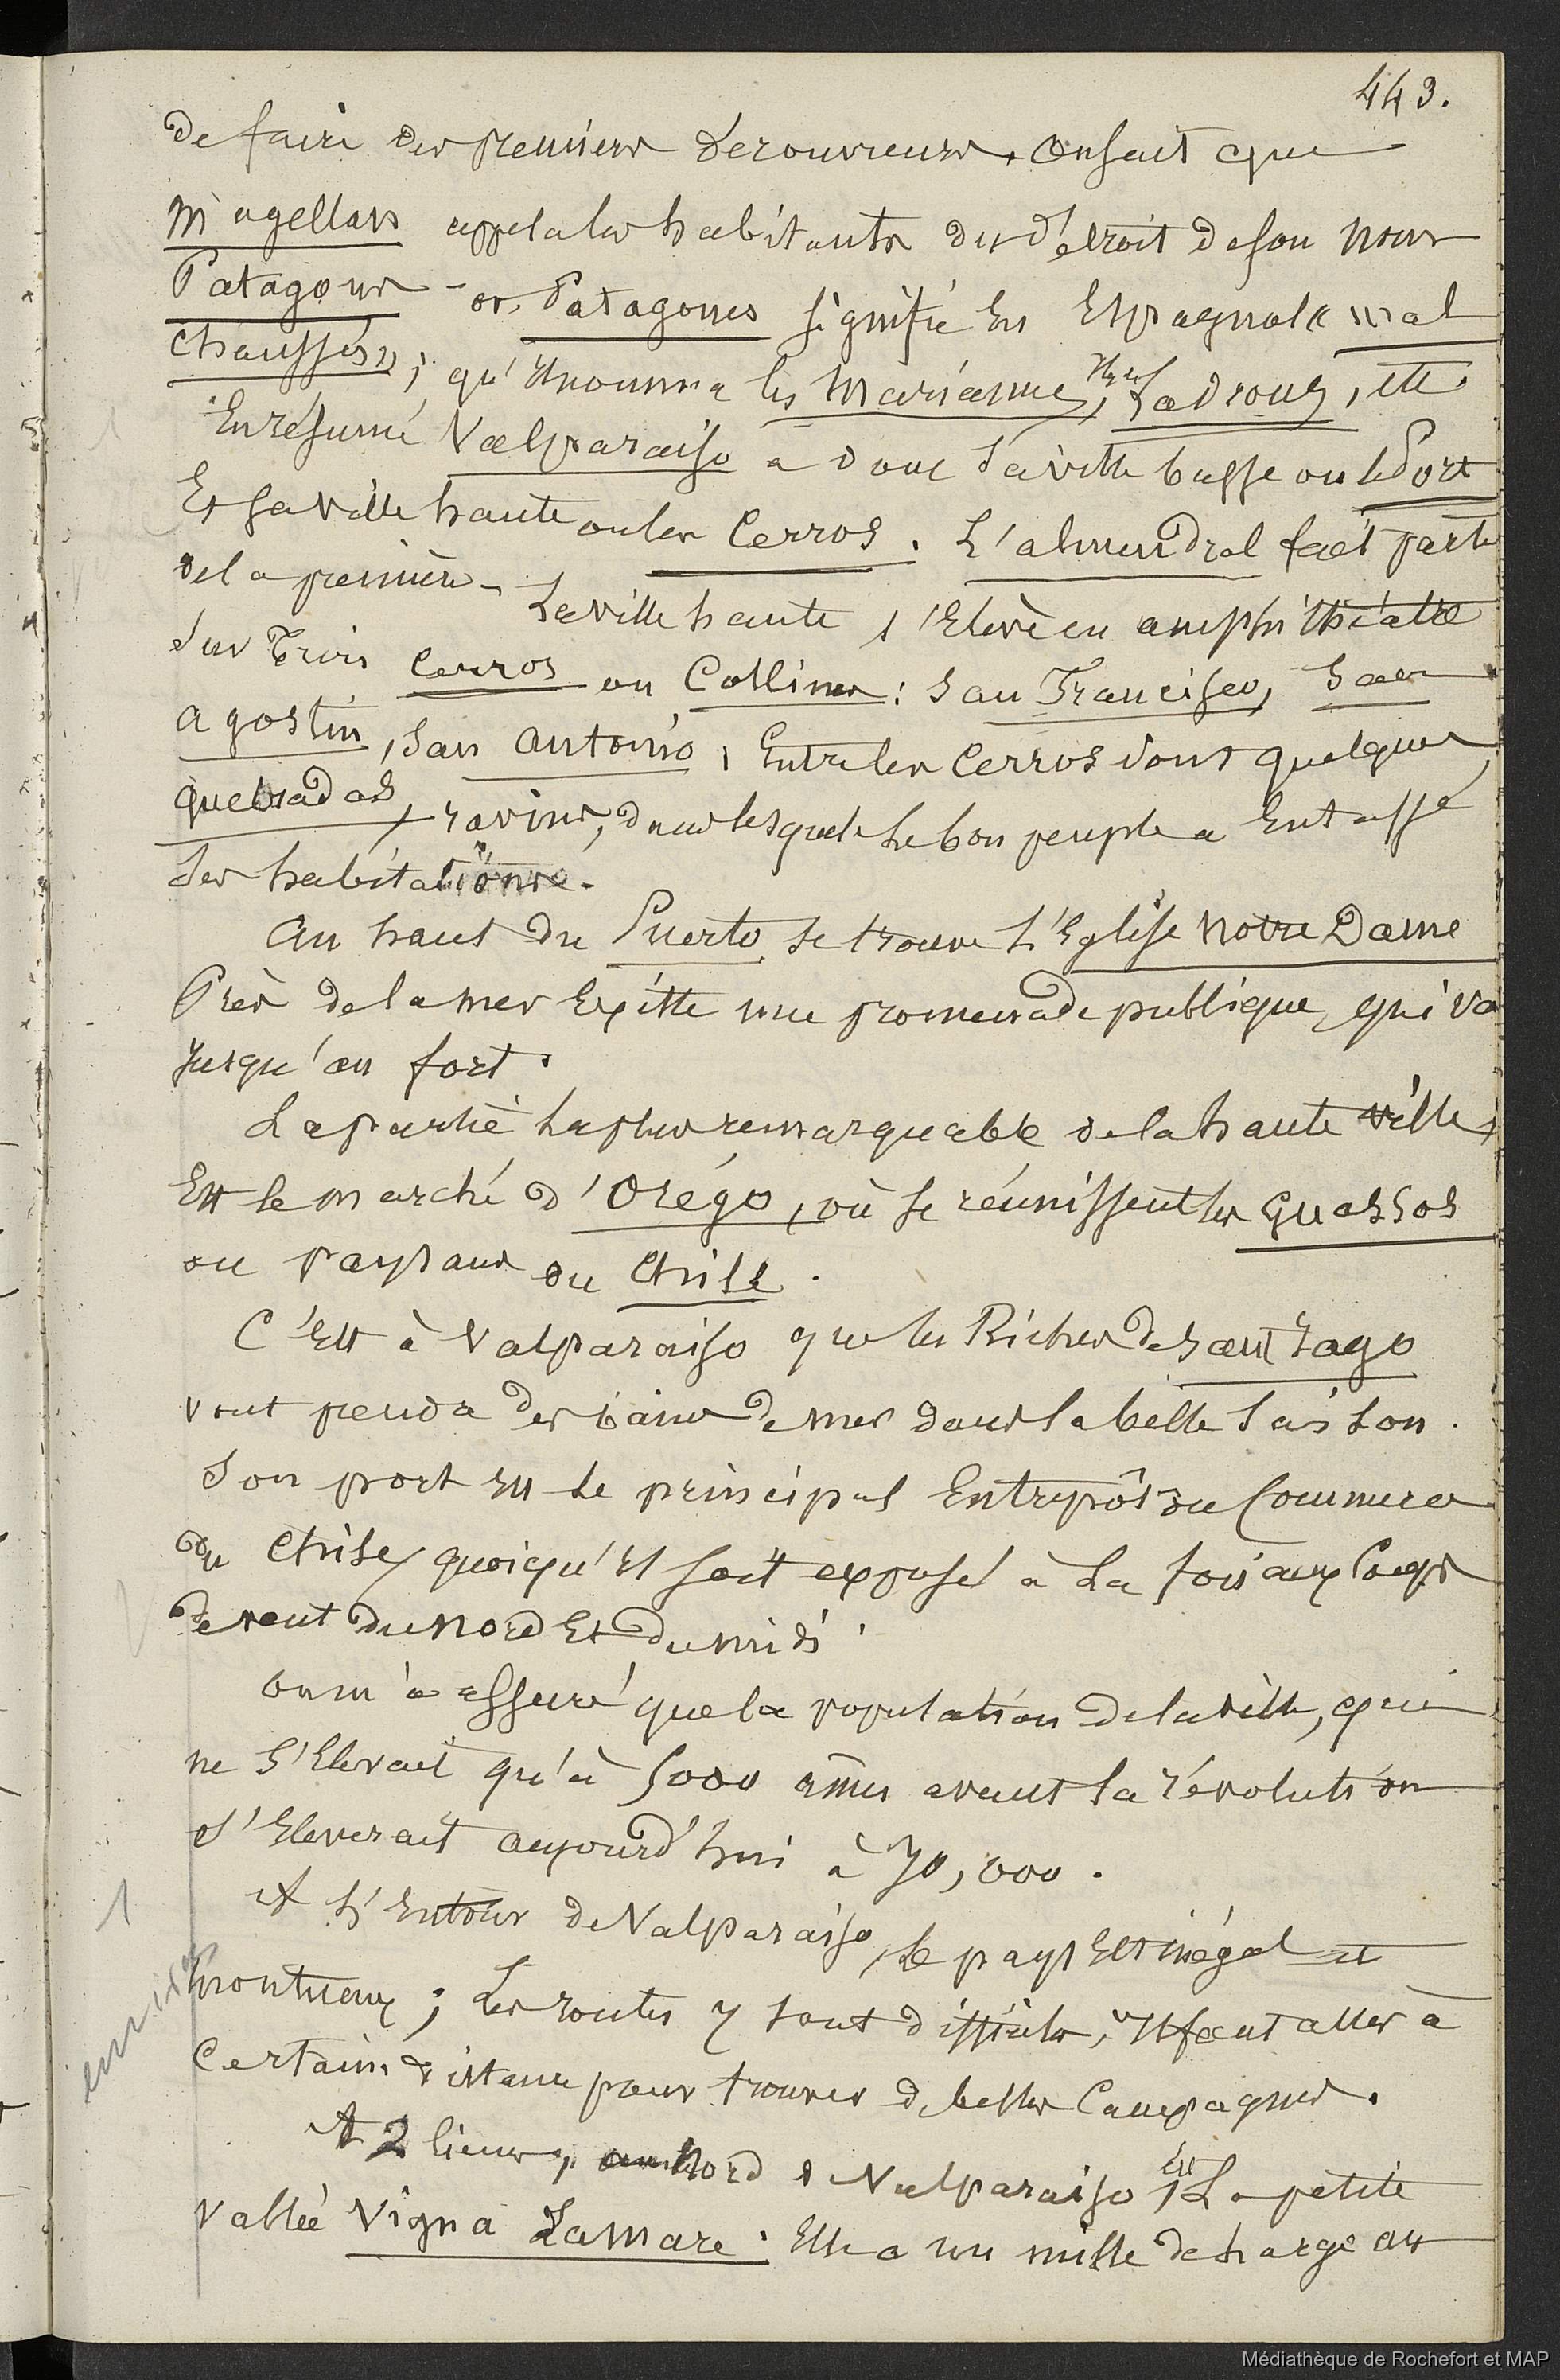 443.
de faire des premiers découvreurs. On sait que
Magellan appela les habitants du détroit de son nom
Patagons - or, Patagones signifie en Espagnol « mal
chaussés » ; qu'il nomma les Mariannes, Iles Ladrones, etc
En résumé Valparaiso a donc sa ville basse ou le Port
Et sa ville haute ou les Cerros. L'almendral fait partie
de la première. La ville haute s'élève en amphithéâtre
sur trois Cerros ou Collines : San Francisco, San
Agostin, San Antonio ; Entre les Cerros sont quelques
quebradas, ravins, dans lesquels le bon peuple a Entassé
ses habitations.
Au haut du Puerto se trouve l'Eglise Notre Dame
Près de la mer Existe une promenade publique, qui va
jusqu'au fort.
La partie la plus remarquable de la haute ville,
Est le marché d'Orégo, où se réunissent les Guassos
ou paysans du Chili.
C'Est à Valparaiso que les Riches de Santiago
vont prendre des bains de mer dans la belle saison.
Son port Est le principal Entrepôt du Commerce
du Chili, quoiqu'il soit exposé à la fois aux Coups
de vent du Nord Et du midi.
On m'a assuré que la population de la ville, qui
ne s'Elevait qu'à 5000 âmes avant la révolution
s'Eleverait aujourd'hui à 70,000.
A l'Entour de Valparaiso, le pays Est inégal et
montueux ; Les routes y sont difficiles, Il faut aller à
Certaine distance pour trouver de belles Campagnes.
A 2 lieues, au Nord de Valparaiso, Est La petite
vallée Vigna Lamare. Elle a un mille de large au